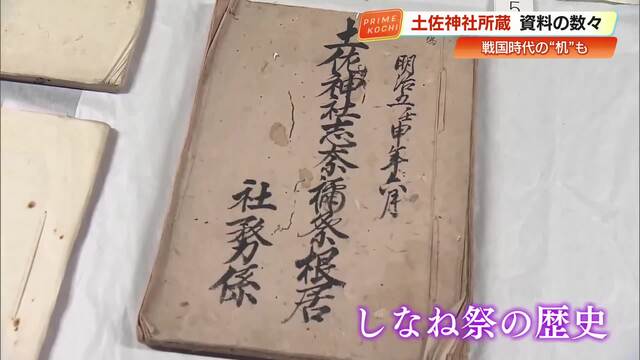 PRIME KOCHI
土佐神社所蔵 資料の数々
戦国時代の“机”も
5
明治五壬申年六月
土佐神社志奈禰祭根居
社務係
しなね祭の歴史